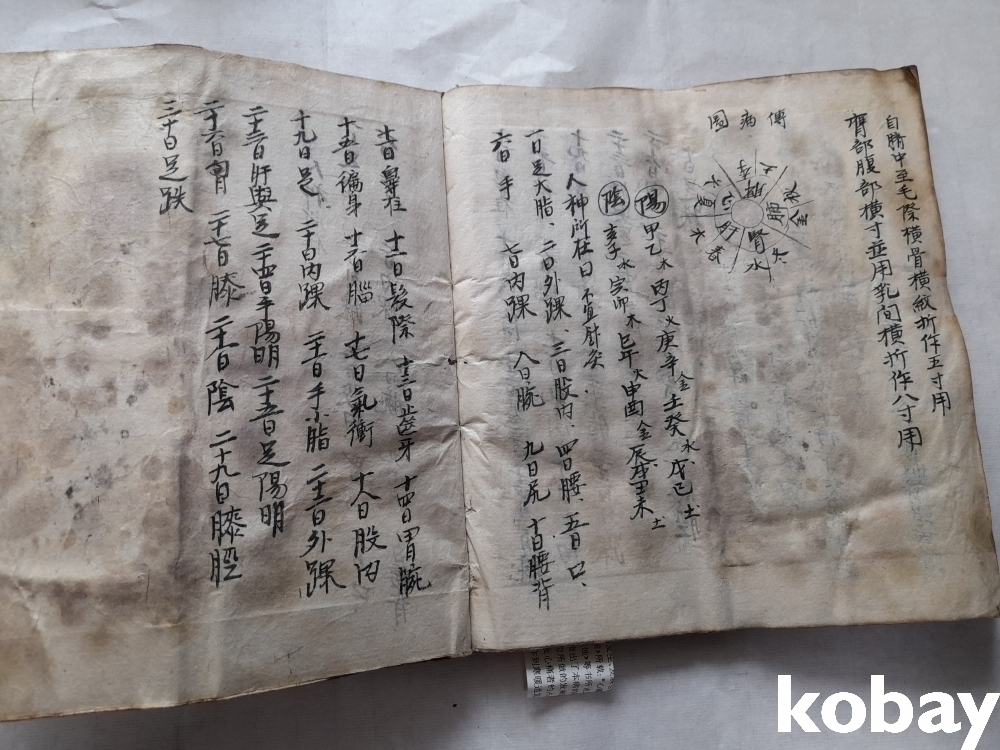 自臍中至毛際橫骨橫紋折作五寸用
膺部腹部橫寸並用乳間橫折作八寸用
傳病圖
肺
金
秋
腎
水
冬
肝
木
春
心
夏
火
脾
土
陽 甲乙木 丙丁火 庚辛金 壬癸水 戊己土
陰 亥子水 寅卯木 巳午火 申酉金 辰戌丑未土
人神所在日 不宜針灸
一日足大脂、二日外踝、三日股内、四日腰、五日口、
六日手 七日内踝 八日腕 九日尻 十日腰背
十一日鼻柱 十二日髮際 十三日齒牙 十四日胃腕
十五日徧身 十六日腦 十七日氣衝 十八日股内
十九日足 二十日内踝 二十一日手小脂 二十二日外踝
二十三日肝與足 二十四日手陽明 二十五日足陽明
二十六日胷 二十七日膝 二十八日陰 二十九日膝脛
三十日足趺
kobay